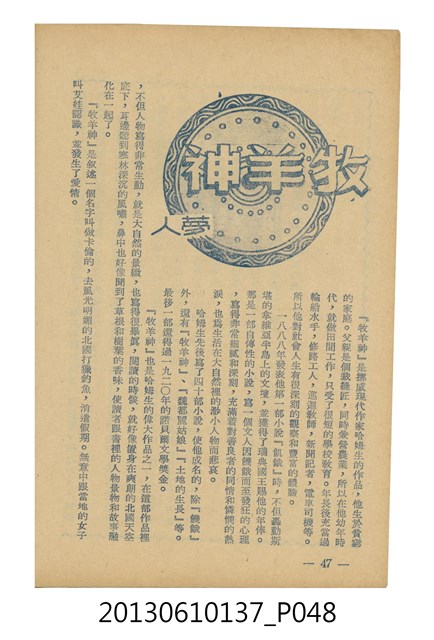 牧羊神
夢人
『牧羊神』是挪威現代作家哈姆生的作品，他生於貧窮
的家庭。父親是個裁縫匠，同時兼營農業，所以在他幼年時
代，就做田間工作，只受了很短的學校教育。年長後充當過
輪船水手，修路工人，巡迴教師，新聞記者，電車司機等。
所以他對社會人生有很深刻的觀察和豐富的體驗。
一八八八年發表他第一部小說『飢餓』時，不但轟動斯
堪的拿維亞半島上的文壇，並獲得了瑞典國王賜他的年俸。
那是一部自傳性的小說，寫一個文人因饑餓而至發狂的心理
，寫得非常細膩和深刻，充滿着對善良者的同情和憐憫的熱
淚，也爲生活在大自然裡的渺小人物而悲哀。
哈姆生先後寫了四十部小說，使他成名的，除『饑餓』
外，還有『牧羊神』、『魏都麗姑娘』、『土地的生長』等。
最後一部還得過一九二〇年的諾貝爾文學獎金。
『牧羊神』也是哈姆生的偉大作品之一，在這部作品裡
，不但人物寫得非常生動，就是大自然的景緻，也寫得很逼眞，閱讀的時候，就好像置身在爽朗的北國天空
底下，耳邊聽到寒林深沉的風嘯，鼻中也好像聞到了草根和樹葉的香味，使讀者跟書裡的人物景物和故事融
化在一起了。
『牧羊神』是叙述一個名字叫做卡倫的，去風光明媚的北國打獵釣魚，消遣假期。無意中跟當地的女子
叫艾娃認識，並發生了愛情。
— 47 —
20130610137_P048